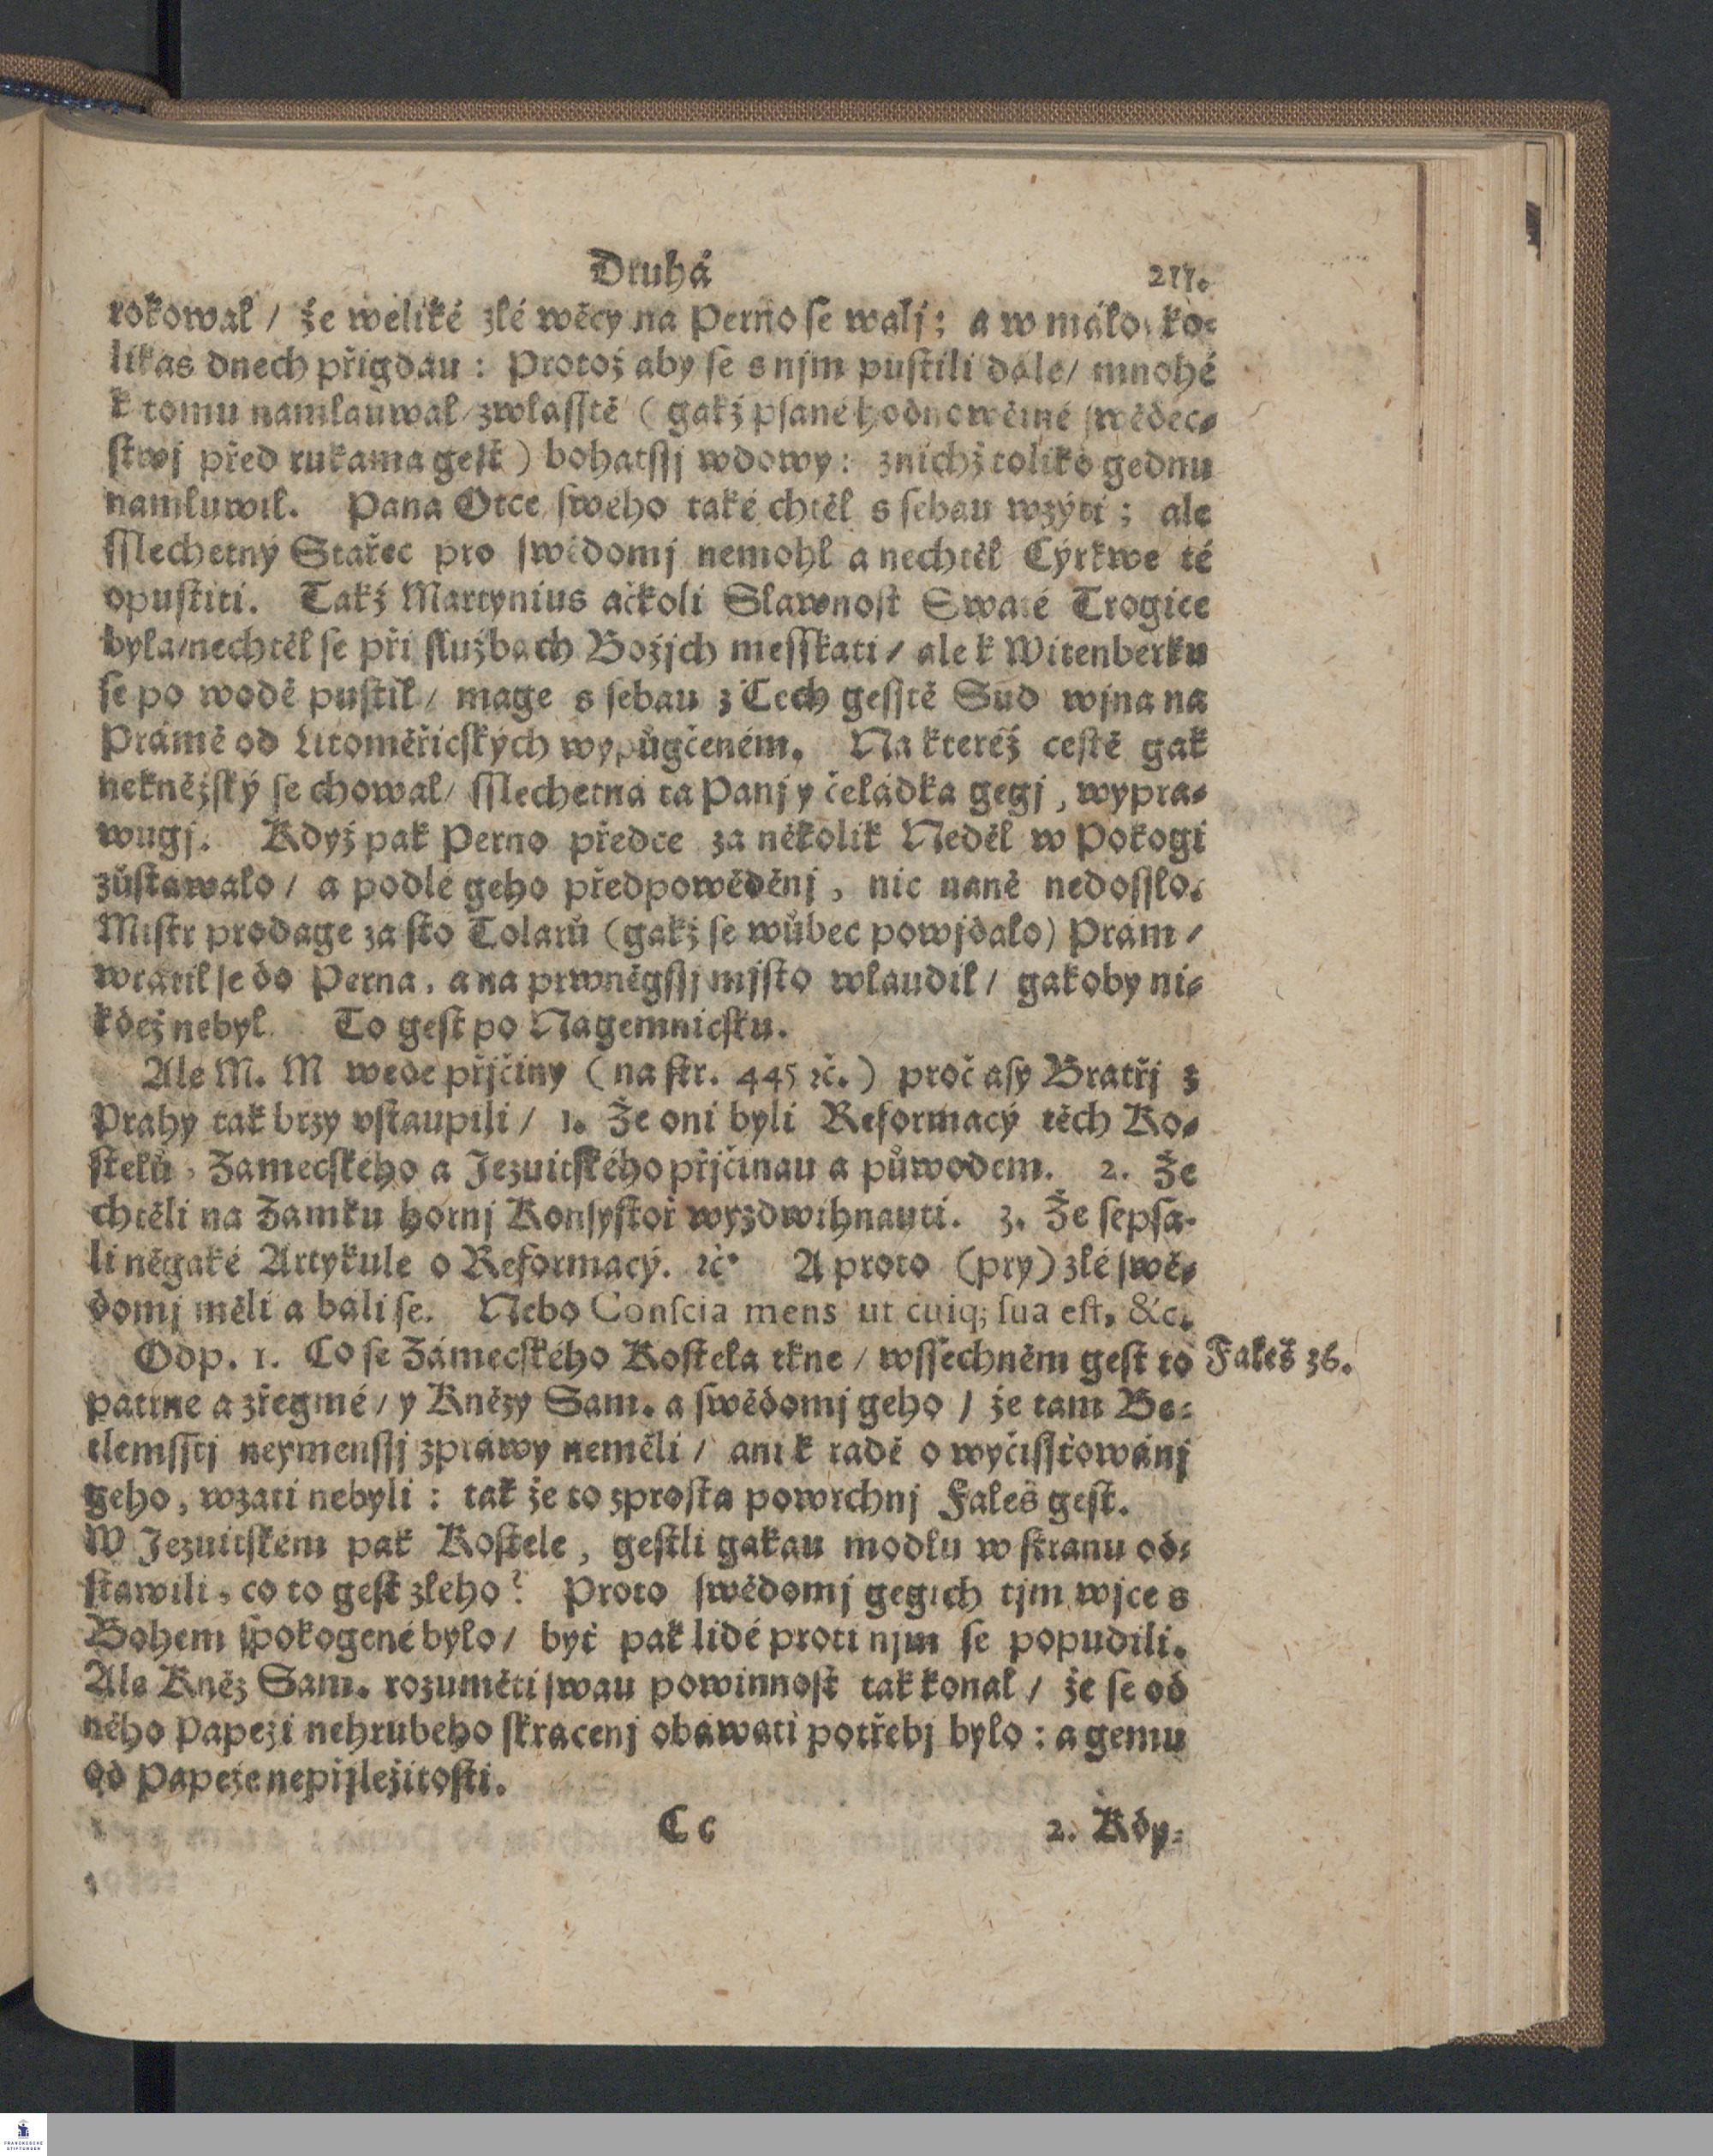 Druhá 211.
rokowal / že weliké zlé wěcy na Perno se walj; a w málo ko-
likas dnech přigdau: Protož aby se s njm pustili dále / mnohé
k tomu namlauwal / zwlasstě (gakž psané hodnowěrné swědec-
stwj před rukama gest) bohatssj wdowy: znichž toliko gednu
namluwil. Pana Otce swého také chtěl s sebau wzýti; ale
sslechetný Stařec pro swědomj nemohl a nechtěl Cýrkwe té
opustiti. Takž Martynius ačkoli Slawnost Swaté Trogice
byla / nechtěl se při službach Božjch messkati / ale k Witenberku
se po wodě pustil / mage s sebau z Cech gesstě Sud wjna na
Prámě od Litoměřicských wypůgčeném. Na kteréž cestě gak
nekněžský se chowal / sslechetná ta Panj y čeládka gegj, wypra-
wugj. Když pak Perno předce za několik Neděl w Pokogi
zůstawalo / a podlé geho předpowěděnj, nic naně nedosslo.
Mistr prodage za sto Tolarů (gakž se wůbec powjdalo) Prám /
wrátil se do Perna, a na prwněgssj mjsto wlaudil / gakoby ni-
kdež nebyl. To gest po Nagemnicsku.
Ale M. M wede přjčiny (na str. 445 ꝛč.) proč asy Bratřj z
Prahy tak brzy vstaupili / 1. Že oni byli Reformacý těch Ko-
stelů, Zamecského a Jezuitského přjčinau a půwodem. 2. Že
chtěli na Zamku hornj Konsystoř wyzdwihnauti. 3. Že sepsa-
li něgaké Artykule o Reformacý. ꝛč. A proto (pry) zlé swě-
domj měli a báli se. Nebo Conscia mens ut cuiq; sua est, &c.
Odp. 1. Co se Zámecského Kostela tkne / wssechněm gest to
Faleš 36.
patrne a zřegmé / y Knězy Sam. a swědomj geho / že tam Be-
tlemsstj neymenssj zpráwy neměli / ani k radě o wyčissťowánj
geho, wzati nebyli: tak že to zprosta powrchnj Faleš gest.
W Jezuitském pak Kostele, gestli gakau modlu w stranu od-
stawili, co to gest zleho? Proto swědomj gegich tjm wjce s
Bohem spokogené bylo / byť pak lidé proti njm se popudili.
Ale Kněz Sam. rozuměti swau powinnost tak konal / že se od
něho Papeži nehrubeho skracenj obáwati potřebj bylo: a gemu
od Papeže nepřjležitosti.
Cc 2. Kdy-
FRANCKESCHE
STIFTUNGEN